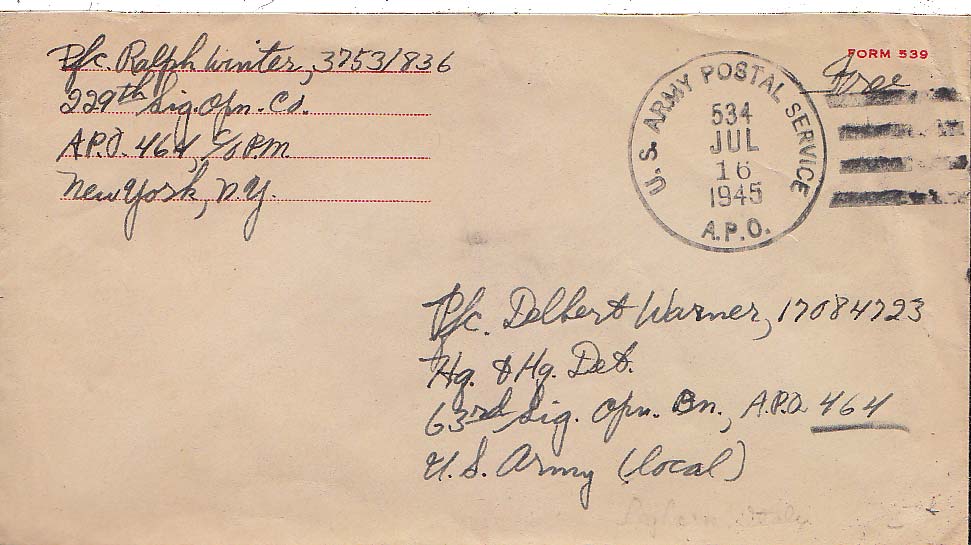 Pfc. Ralph Winter, 37531836
229th Sig. Opn. Co.
A.P.O. 464, c/o P.M.
New York, N.Y.
FORM 539
Free
U. S. ARMY POSTAL SERVICE
534
JUL
16
1945
A.P.O.
Pfc. Delbert Warner, 17084723
Hq. & Hq. Det.
63rd Sig. Opn. Bn., A.P.O. 464
U. S. Army (local)